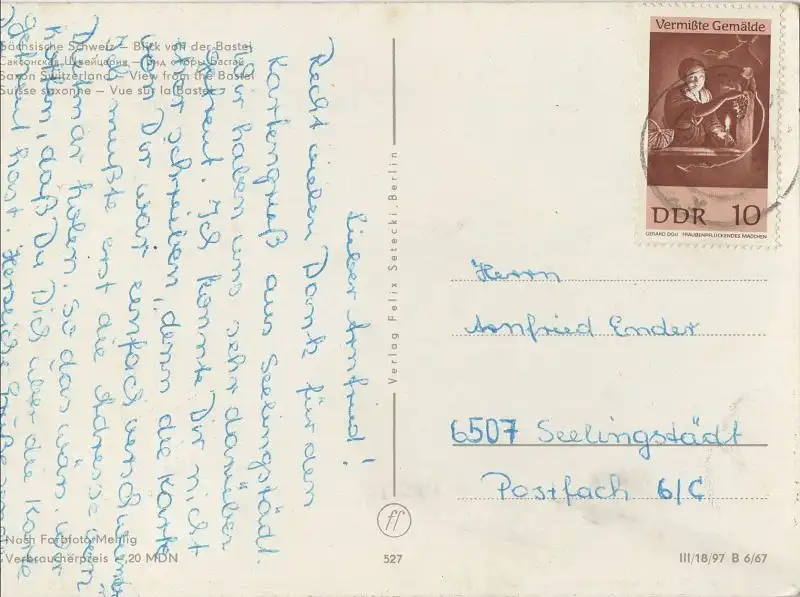 Sächsische Schweiz – Blick von der Bastei
Саксонская Швейцария – Вид с горы Бастай
Saxon Switzerland – View from the Bastei
Suisse saxonne – Vue sur la Bastei
Lieber Arnfried!
Recht vielen Dank für den
Kartengruß aus Seelingstädt.
Wir haben uns sehr darüber
gefreut. Ich konnte Dir nicht
eher schreiben, denn die Karte
von Dir war einfach verschwunden
mußte erst die Adresse von
Dietmar holen. So das wär's. Wir
hoffen, daß Du Dich über die Karte
gefreut hast. Herzliche Grüße
Nach Farbfoto Mehlig
Verbraucherpreis -,20 MDN
Verlag Felix Setecki Berlin
ff
527
Vermißte Gemälde
DDR 10
GERARD DOU TRAUBENPFLÜCKENDES MÄDCHEN
Herrn
Arnfried Ender
6507 Seelingstädt
Postfach 6/C
III/18/97 B 6/67